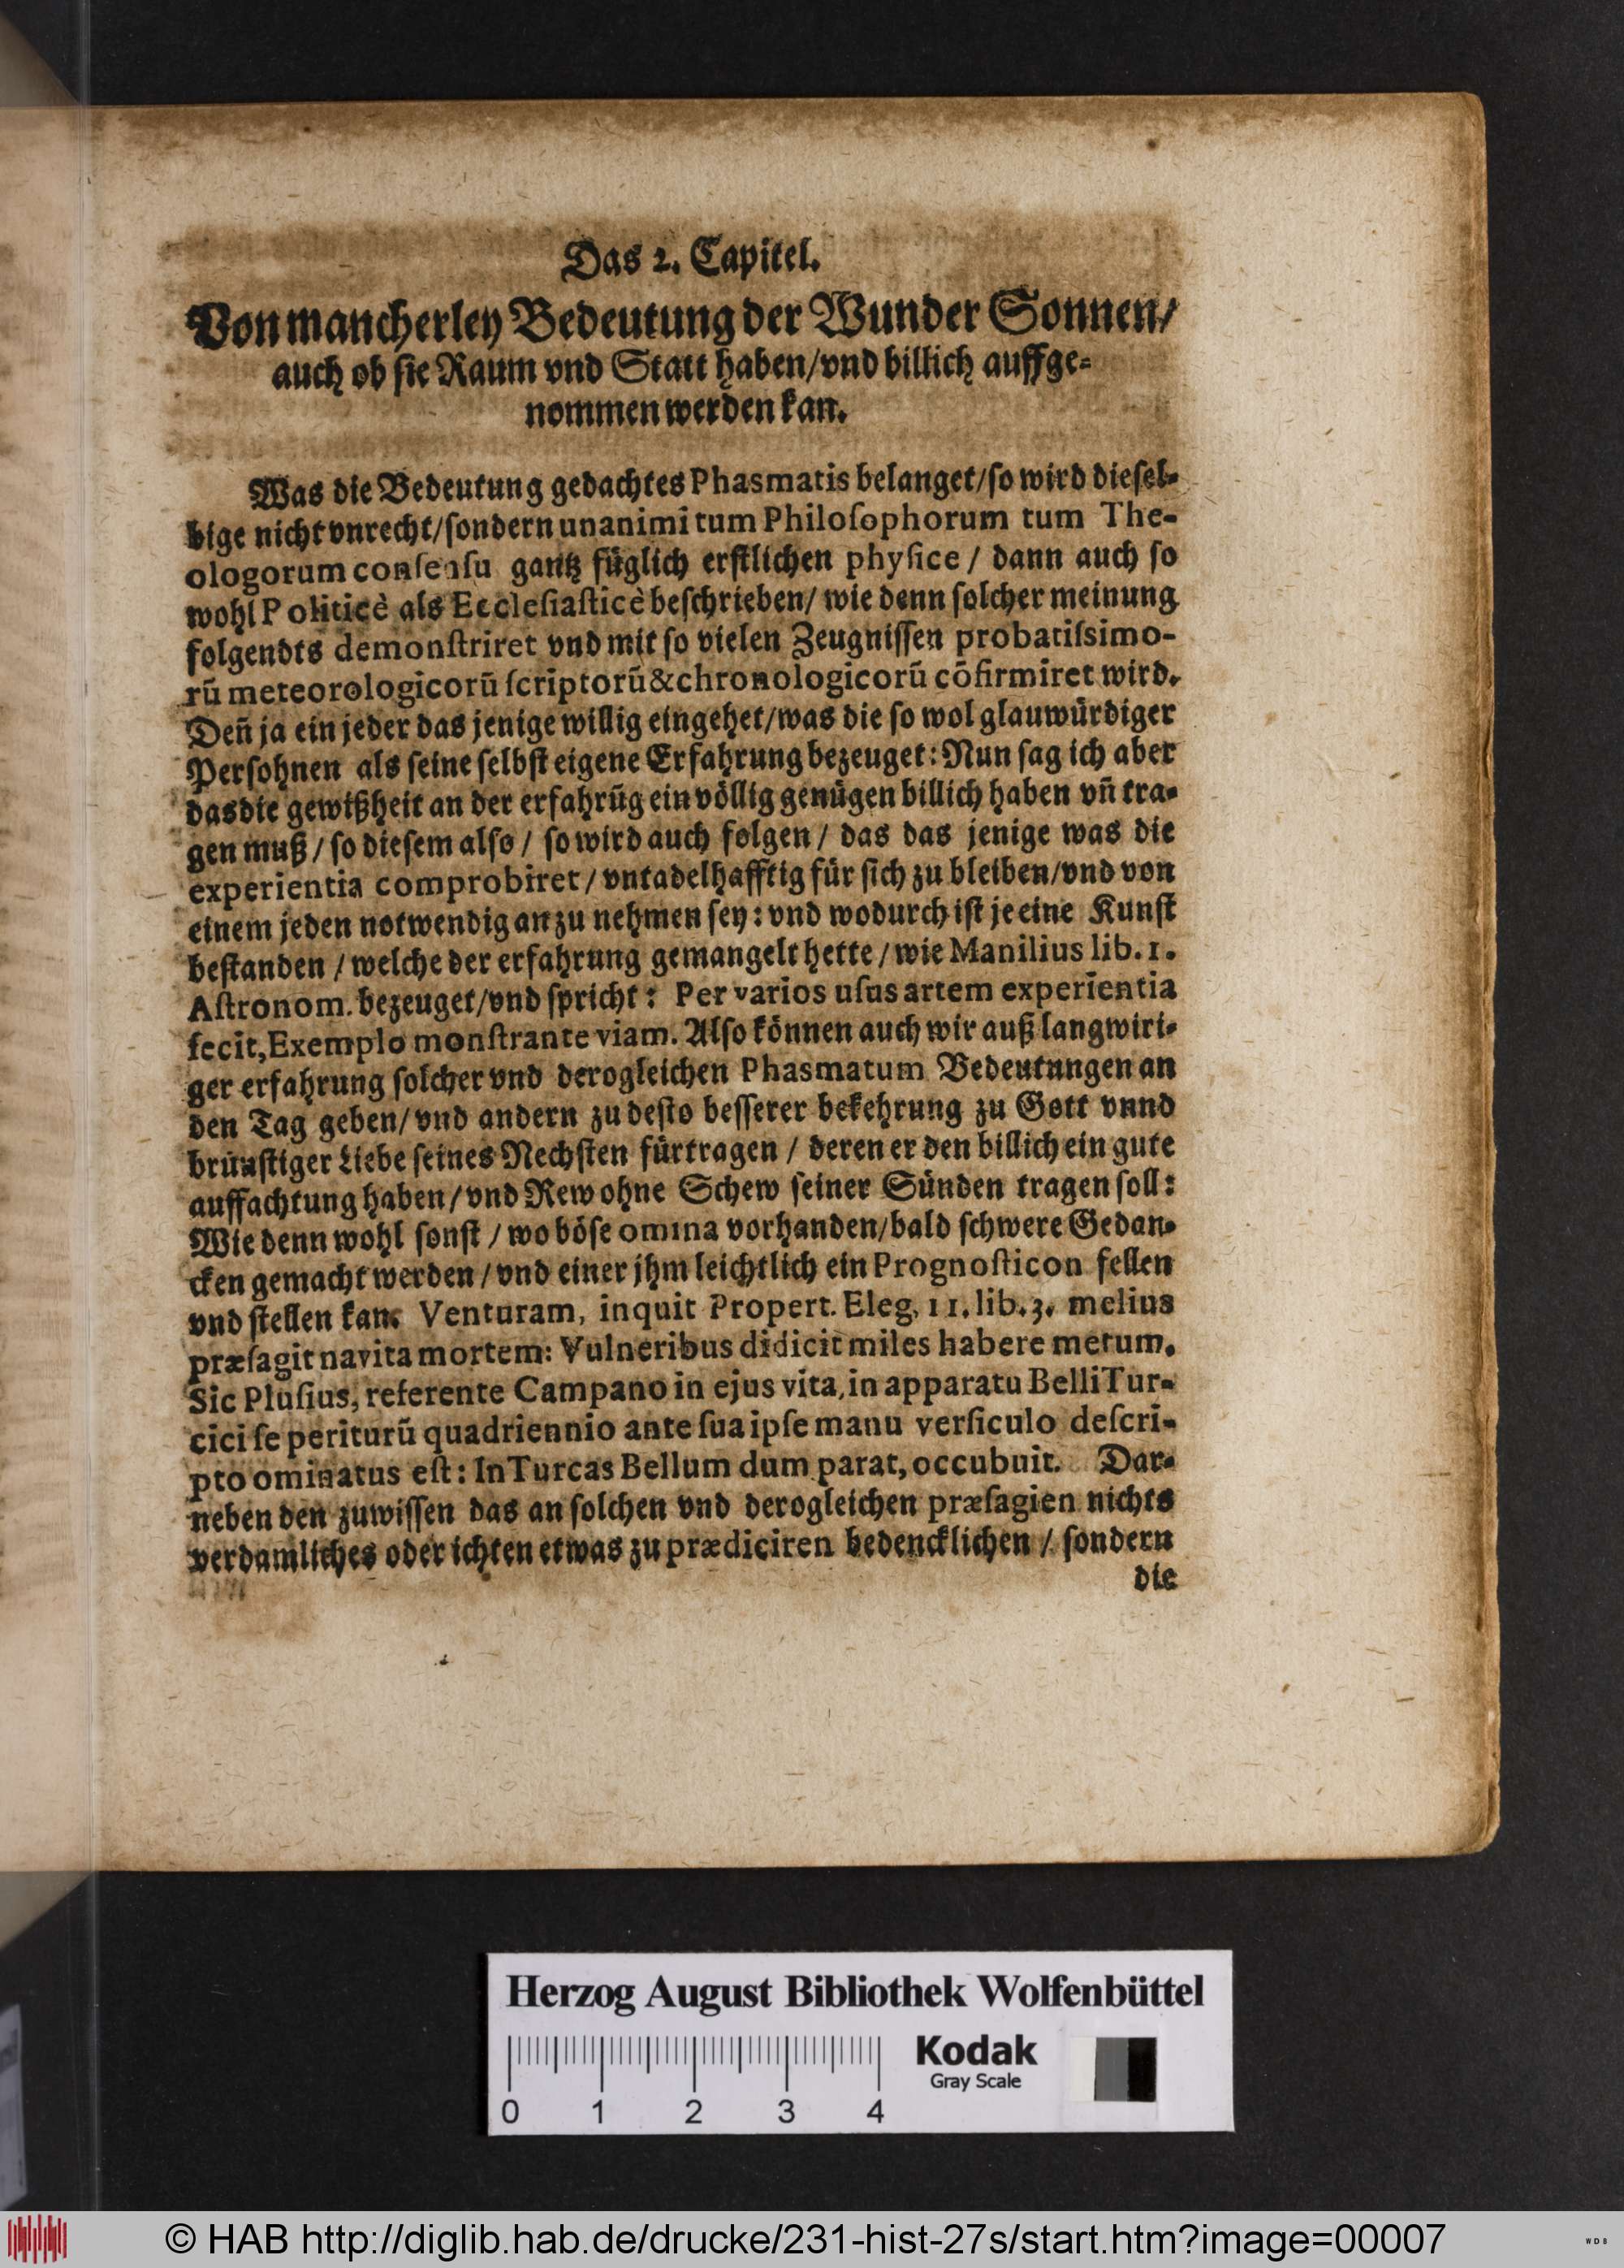 Das 2. Capitel.
Von mancherley Bedeutung der Wunder Sonnen/
auch ob sie Raum vnd Statt haben/vnd billich auffge-
nommen werden kan.
Was die Bedeutung gedachtes Phasmatis belanget/so wird diesel-
bige nicht vnrecht/sondern unanimi tum Philoſophorum tum The-
ologorum conſenſu gantz füglich erstlichen phyſice / dann auch so
wohl Politicè als Eccleſiaſticè beschrieben/ wie denn solcher meinung
folgendts demonſtriret vnd mit so vielen Zeugnissen probatiſsimo-
rũ meteorologicorũ ſcriptorũ &chronologicorũ cõfirmiret wird.
Deñ ja ein jeder das jenige willig eingehet/was die so wol glauwürdiger
Persohnen als seine selbst eigene Erfahrung bezeuget: Nun sag ich aber
das die gewißheit an der erfahrũg ein völlig genügen billich haben vñ tra-
gen muß / so diesem also / so wird auch folgen / das das jenige was die
experientia comprobiret / vntadelhafftig für sich zu bleiben/vnd von
einem jeden notwendig an zu nehmen sey: vnd wodurch ist je eine Kunst
bestanden / welche der erfahrung gemangelt hette / wie Manilius lib. 1.
Aſtronom. bezeuget/vnd spricht: Per varios uſus artem experientia
fecit, Exemplo monſtrante viam. Also können auch wir auß langwiri-
ger erfahrung solcher vnd derogleichen Phasmatum Bedeutungen an
den Tag geben/ vnd andern zu desto besserer bekehrung zu Gott vnnd
brünstiger Liebe seines Nechsten fürtragen / deren er den billich ein gute
auffachtung haben/vnd Rew ohne Schew seiner Sünden tragen soll:
Wie denn wohl sonst / wo böse omina vorhanden/bald schwere Gedan-
cken gemacht werden / vnd einer jhm leichtlich ein Prognoſticon fellen
vnd stellen kan. Venturam, inquit Propert. Eleg. 11. lib. 3. melius
præſagit navita mortem: Vulneribus didicit miles habere metum.
Sic Pluſius, referente Campano in ejus vita, in apparatu Belli Tur-
cici ſe periturũ quadriennio ante ſua ipſe manu verſiculo deſcri-
pto ominatus eſt: In Turcas Bellum dum parat, occubuit. Dar-
neben den zuwissen das an solchen vnd derogleichen præſagien nichts
verdamliches oder ichten etwas zu prædiciren bedencklichen / sondern
die
Herzog August Bibliothek Wolfenbüttel
Kodak
Gray Scale
0 1 2 3 4
© HAB http://diglib.hab.de/drucke/231-hist-27s/start.htm?image=00007
WDB